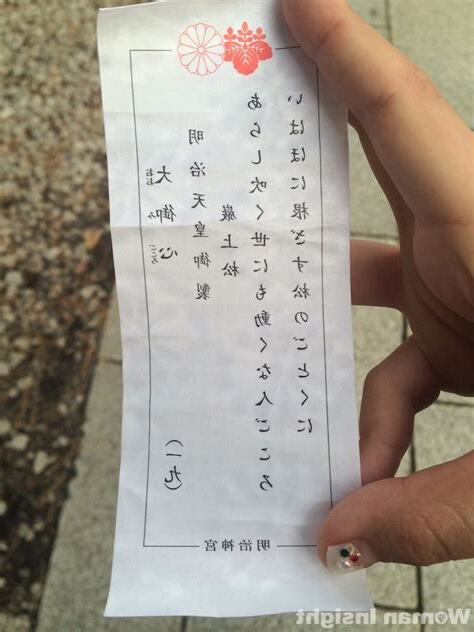 大御心 (一九)
おおみごころ
明治天皇御製
巌上松
あらし吹く世にも動くな人ごころ
いはほに根ざす松のごとくに
明治神宮
Woman Insight